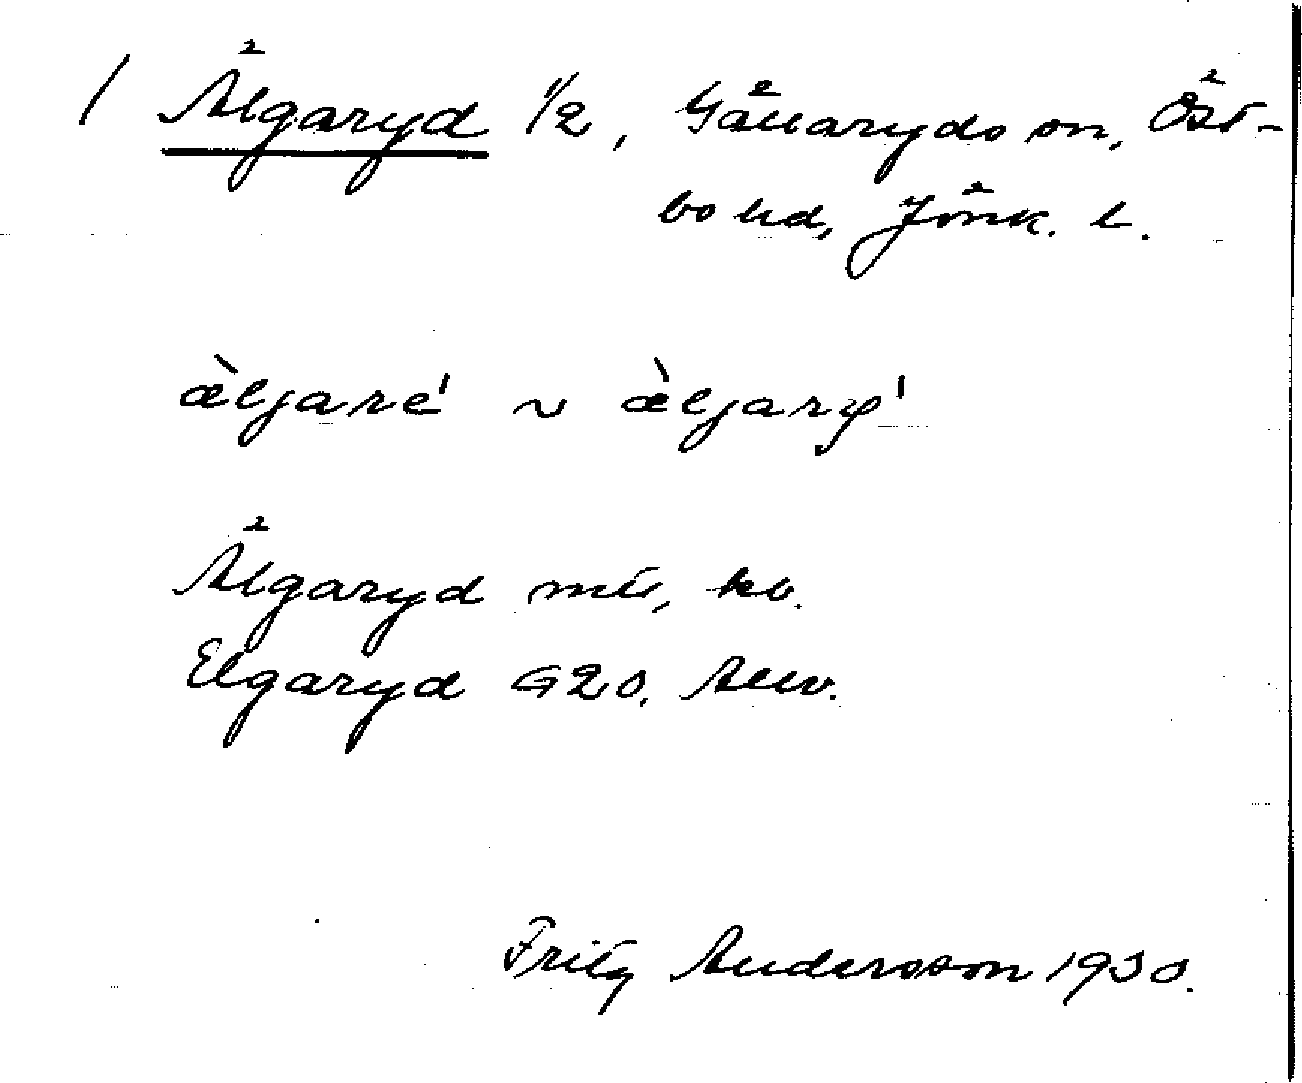 / Älgaryd 1/2, Gällaryds sn, Öst-
bo hd, Jönk. l.
àeljaré' ~ àeljarý'
Älgaryd mtr, kv.
Elgaryd G20,
Fritz Andersson 1930.